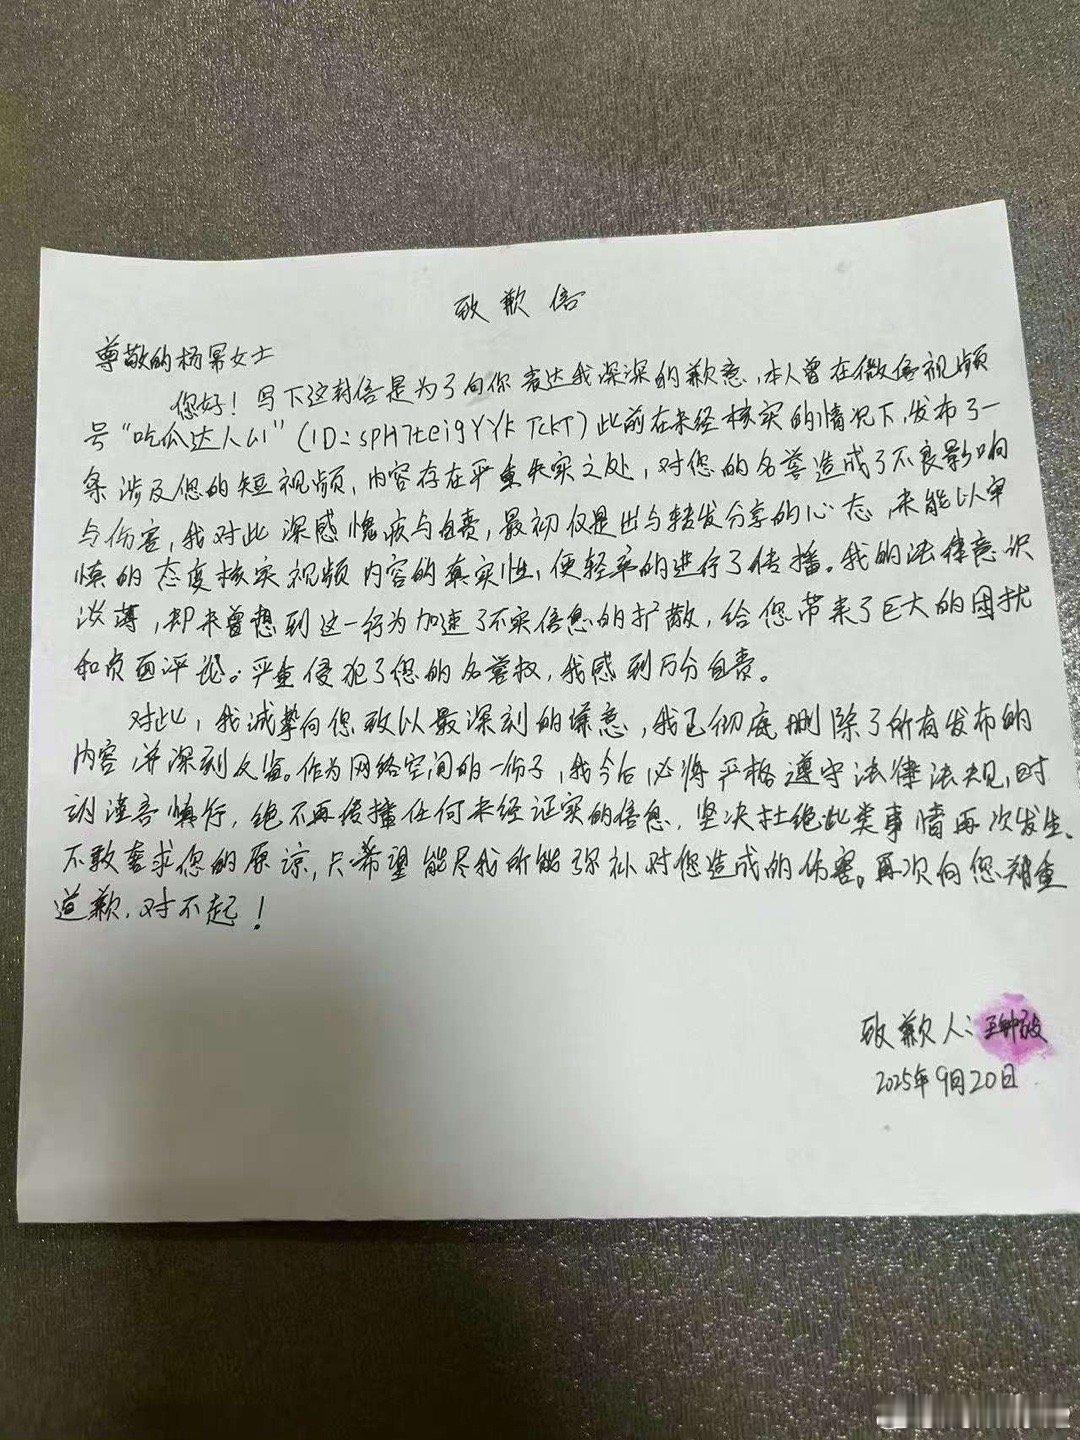 致歉信
尊敬的杨幂女士
您好！写下这封信是为了向你表达我深深的歉意，本人曾在微信视频
号“吃瓜达人山”（ID：spH7teigYYkTckT）此前在未经核实的情况下，发布了一
条涉及您的短视频，内容存在严重失实之处，对您的名誉造成了不良影响
与伤害，我对此深感愧疚与自责，最初仅是出与转发分享的心态，未能以审
慎的态度核实视频内容的真实性，便轻率的进行了传播。我的法律意识
淡薄，却未曾想到这一行为加速了不实信息的扩散，给您带来了巨大的困扰
和负面评论。严重侵犯了您的名誉权，我感到万分自责。
对此，我诚挚向您致以最深刻的歉意，我已彻底删除了所有发布的
内容，并深刻反省。作为网络空间的一份子，我今后必将严格遵守法律法规，时
刻谨言慎行，绝不再传播任何未经证实的信息，坚决杜绝此类事情再次发生。
不敢奢求您的原谅，只希望能尽我所能弥补对您造成的伤害。再次向您郑重
道歉，对不起！
致歉人：王钟
2025年9月20日